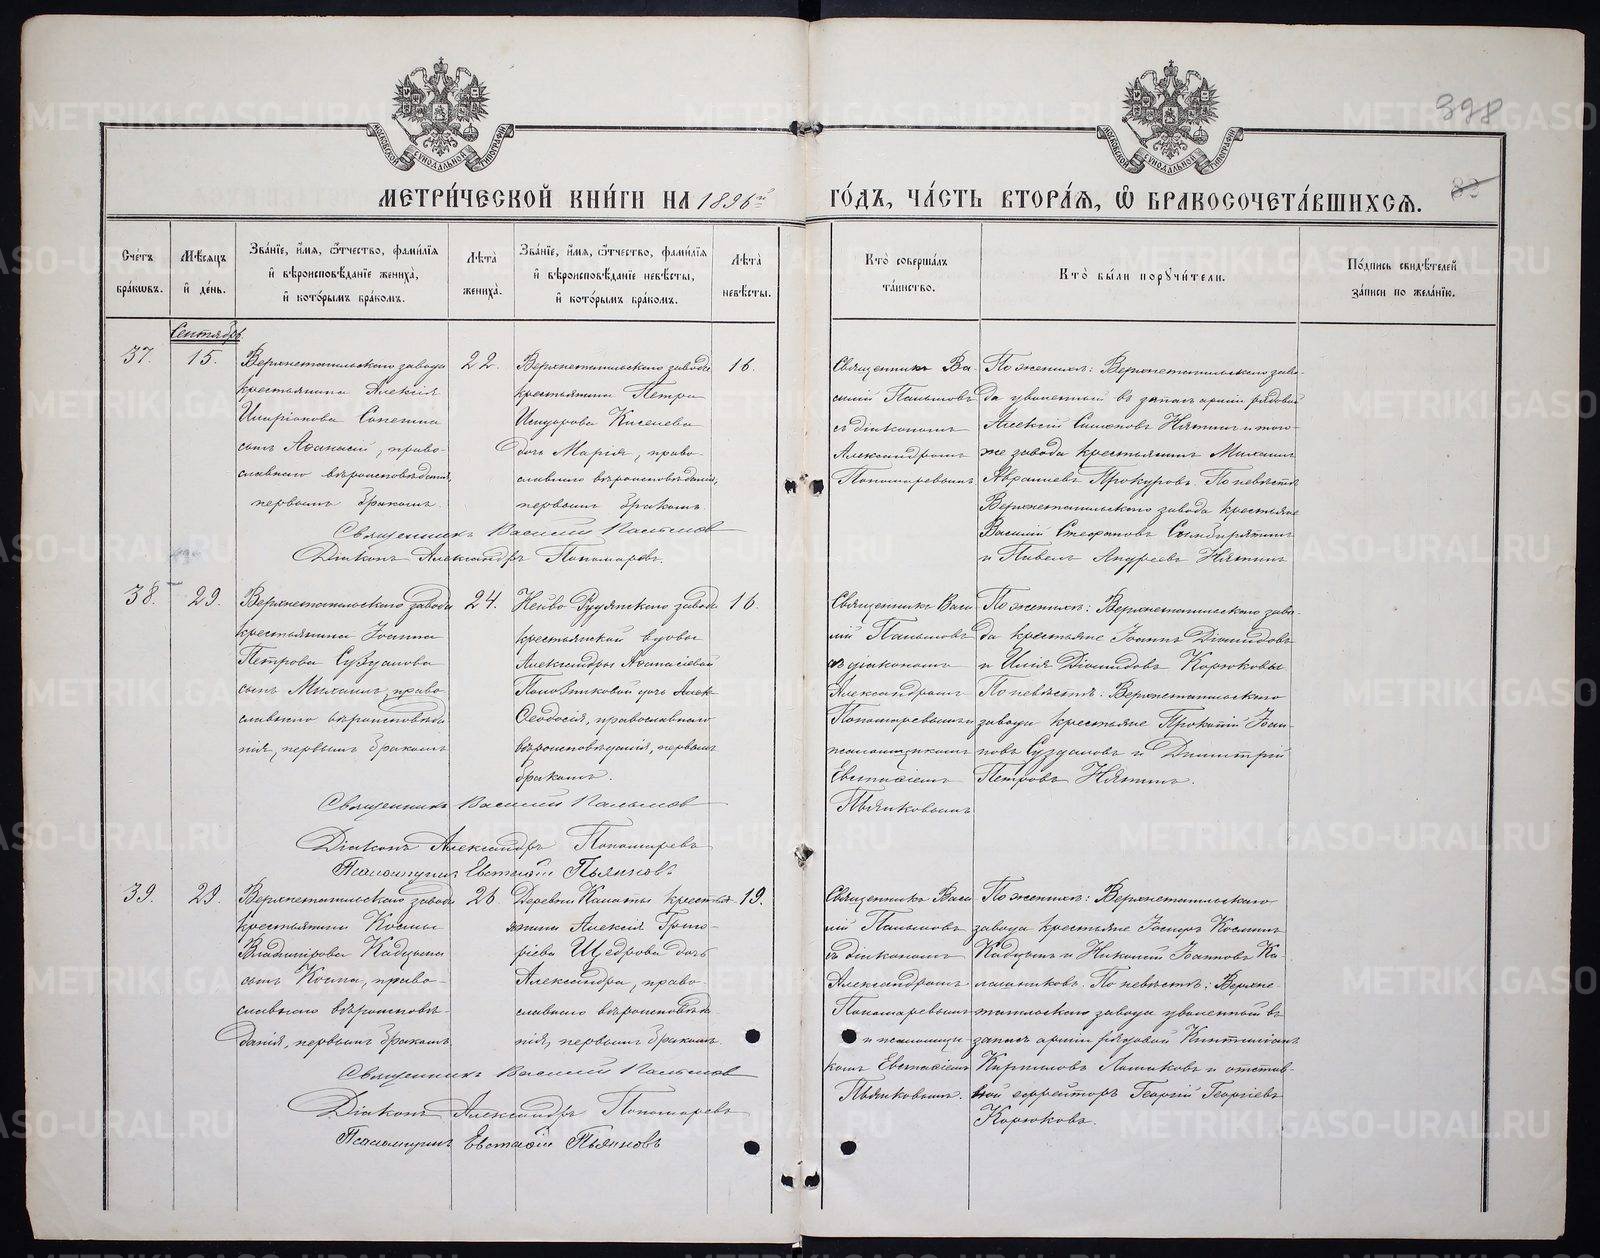 398
83
МОСКОВСКОЙ СѴНОДАЛЬНОЙ ТИПОГРАФІИ
МОСКОВСКОЙ СѴНОДАЛЬНОЙ ТИПОГРАФІИ
МЕТРИ́ЧЕСКОЙ КНИ́ГИ НА 1896й ГО́ДЪ, ЧА́СТЬ ВТОРА́Я, Ѿ БРАКОСОЧЕТА́ВШИХСЯ.
Сче́тъ бра́кѡвъ.
Мѣ́сяцъ и҆ де́нь.
Зва́нїе, и҆́мя, ѻ҆́тчество, фами́лїя
и҆ вѣроисповѣ́данїе жениха̀,
и҆ кото́рымъ бра́комъ.
Лѣ́та̀ жениха̀.
Зва́нїе, и҆́мя, ѻ҆́тчество, фами́лїя
и҆ вѣроисповѣ́данїе невѣ́сты,
и҆ кото́рымъ бра́комъ.
Лѣ́та̀ невѣ́сты.
Кто̀ соверша́лъ та́инство.
Кто̀ бы́ли порꙋчи́тели.
По́дпись свидѣ́телей за́писи по жела́нїю.
Сентябрь
37.
15.
Верхнетагильскаго завода
крестьянина Алексія
Иларіонова Сапегина
сынъ Аѳанасій, право-
славнаго вѣроисповѣданія,
первымъ бракомъ.
22.
Верхнетагильскаго завода
крестьянина Петра
Исидорова Киселева
дочь Марія, право-
славнаго вѣроисповѣданія,
первымъ бракомъ.
16.
Священникъ Ва-
силій Пальмовъ
съ діакономъ
Александромъ
Пономаревымъ
По женихѣ: Верхнетагильскаго заво-
да уволенный въ запасъ арміи рядовой
Алексій Симеоновъ Нямтинъ и того-
же завода крестьянинъ Михаилъ
Авраміевъ Прокуровъ. По невѣстѣ
Верхнетагильскаго завода крестьяне
Василій Стефановъ Симбирятинъ
и Павелъ Андреевъ
Священникъ Василій Пальмовъ
Діаконъ Александръ Пономаревъ.
38.
29.
Верхнетагильскаго завода
крестьянина Іоанна
Петрова Сузданова
сынъ Михаилъ, право-
славнаго вѣроисповѣда-
нія, первымъ бракомъ
24.
Нейво Рудянскаго завода
крестьянской вдовы
Александры Аѳанасіевой
дочь
Ѳеодосія, православнаго
вѣроисповѣданія, первымъ
бракомъ.
16.
Священникъ Васи-
лій Пальмовъ
съ діакономъ
Александромъ
Пономаревымъ и
псаломщикомъ
Евстаѳіемъ
Пьянковымъ
По женихѣ: Верхнетагильскаго заво-
да крестьяне Іоаннъ Діомидовъ
и Илія Діомидовъ Корюковы
По невѣстѣ: Верхнетагильскаго
завода крестьяне Прокопій Іоан-
новъ Суздановъ и Димитрій
Петровъ
Священникъ Василій Пальмовъ
Діаконъ Александръ Пономаревъ
Псаломщикъ Евстаѳій Пьянковъ
39.
29.
Верхнетагильскаго завода
крестьянина Космы
Владимірова Кадцына
сынъ Косма, право-
славнаго вѣроисповѣ-
данія, первымъ бракомъ.
26
Деревни Калаты крестья-
нина Алексія Григо-
ріева Щедрова дочь
Александра, право-
славнаго вѣроисповѣда-
нія, первымъ бракомъ.
19.
Священникъ Васи-
лій Пальмовъ
съ діакономъ
Александромъ
Пономаревымъ
и псаломщи-
комъ Евстаѳіемъ
Пьянковымъ.
По женихѣ: Верхнетагильскаго
завода крестьяне Космин
Кадцынъ и Николай Іоанновъ Ка-
лашниковъ. По невѣстѣ: Верхне-
тагильскаго завода уволенный въ
запасъ арміи рядовой
Кирилловъ и отстав-
ной ефрейторъ Георгій Георгіевъ
Корюковъ.
Священникъ Василій Пальмовъ
Діаконъ Александръ Пономаревъ
Псаломщикъ Евстаѳій Пьянковъ
METRIKI.GASO-URAL.RU